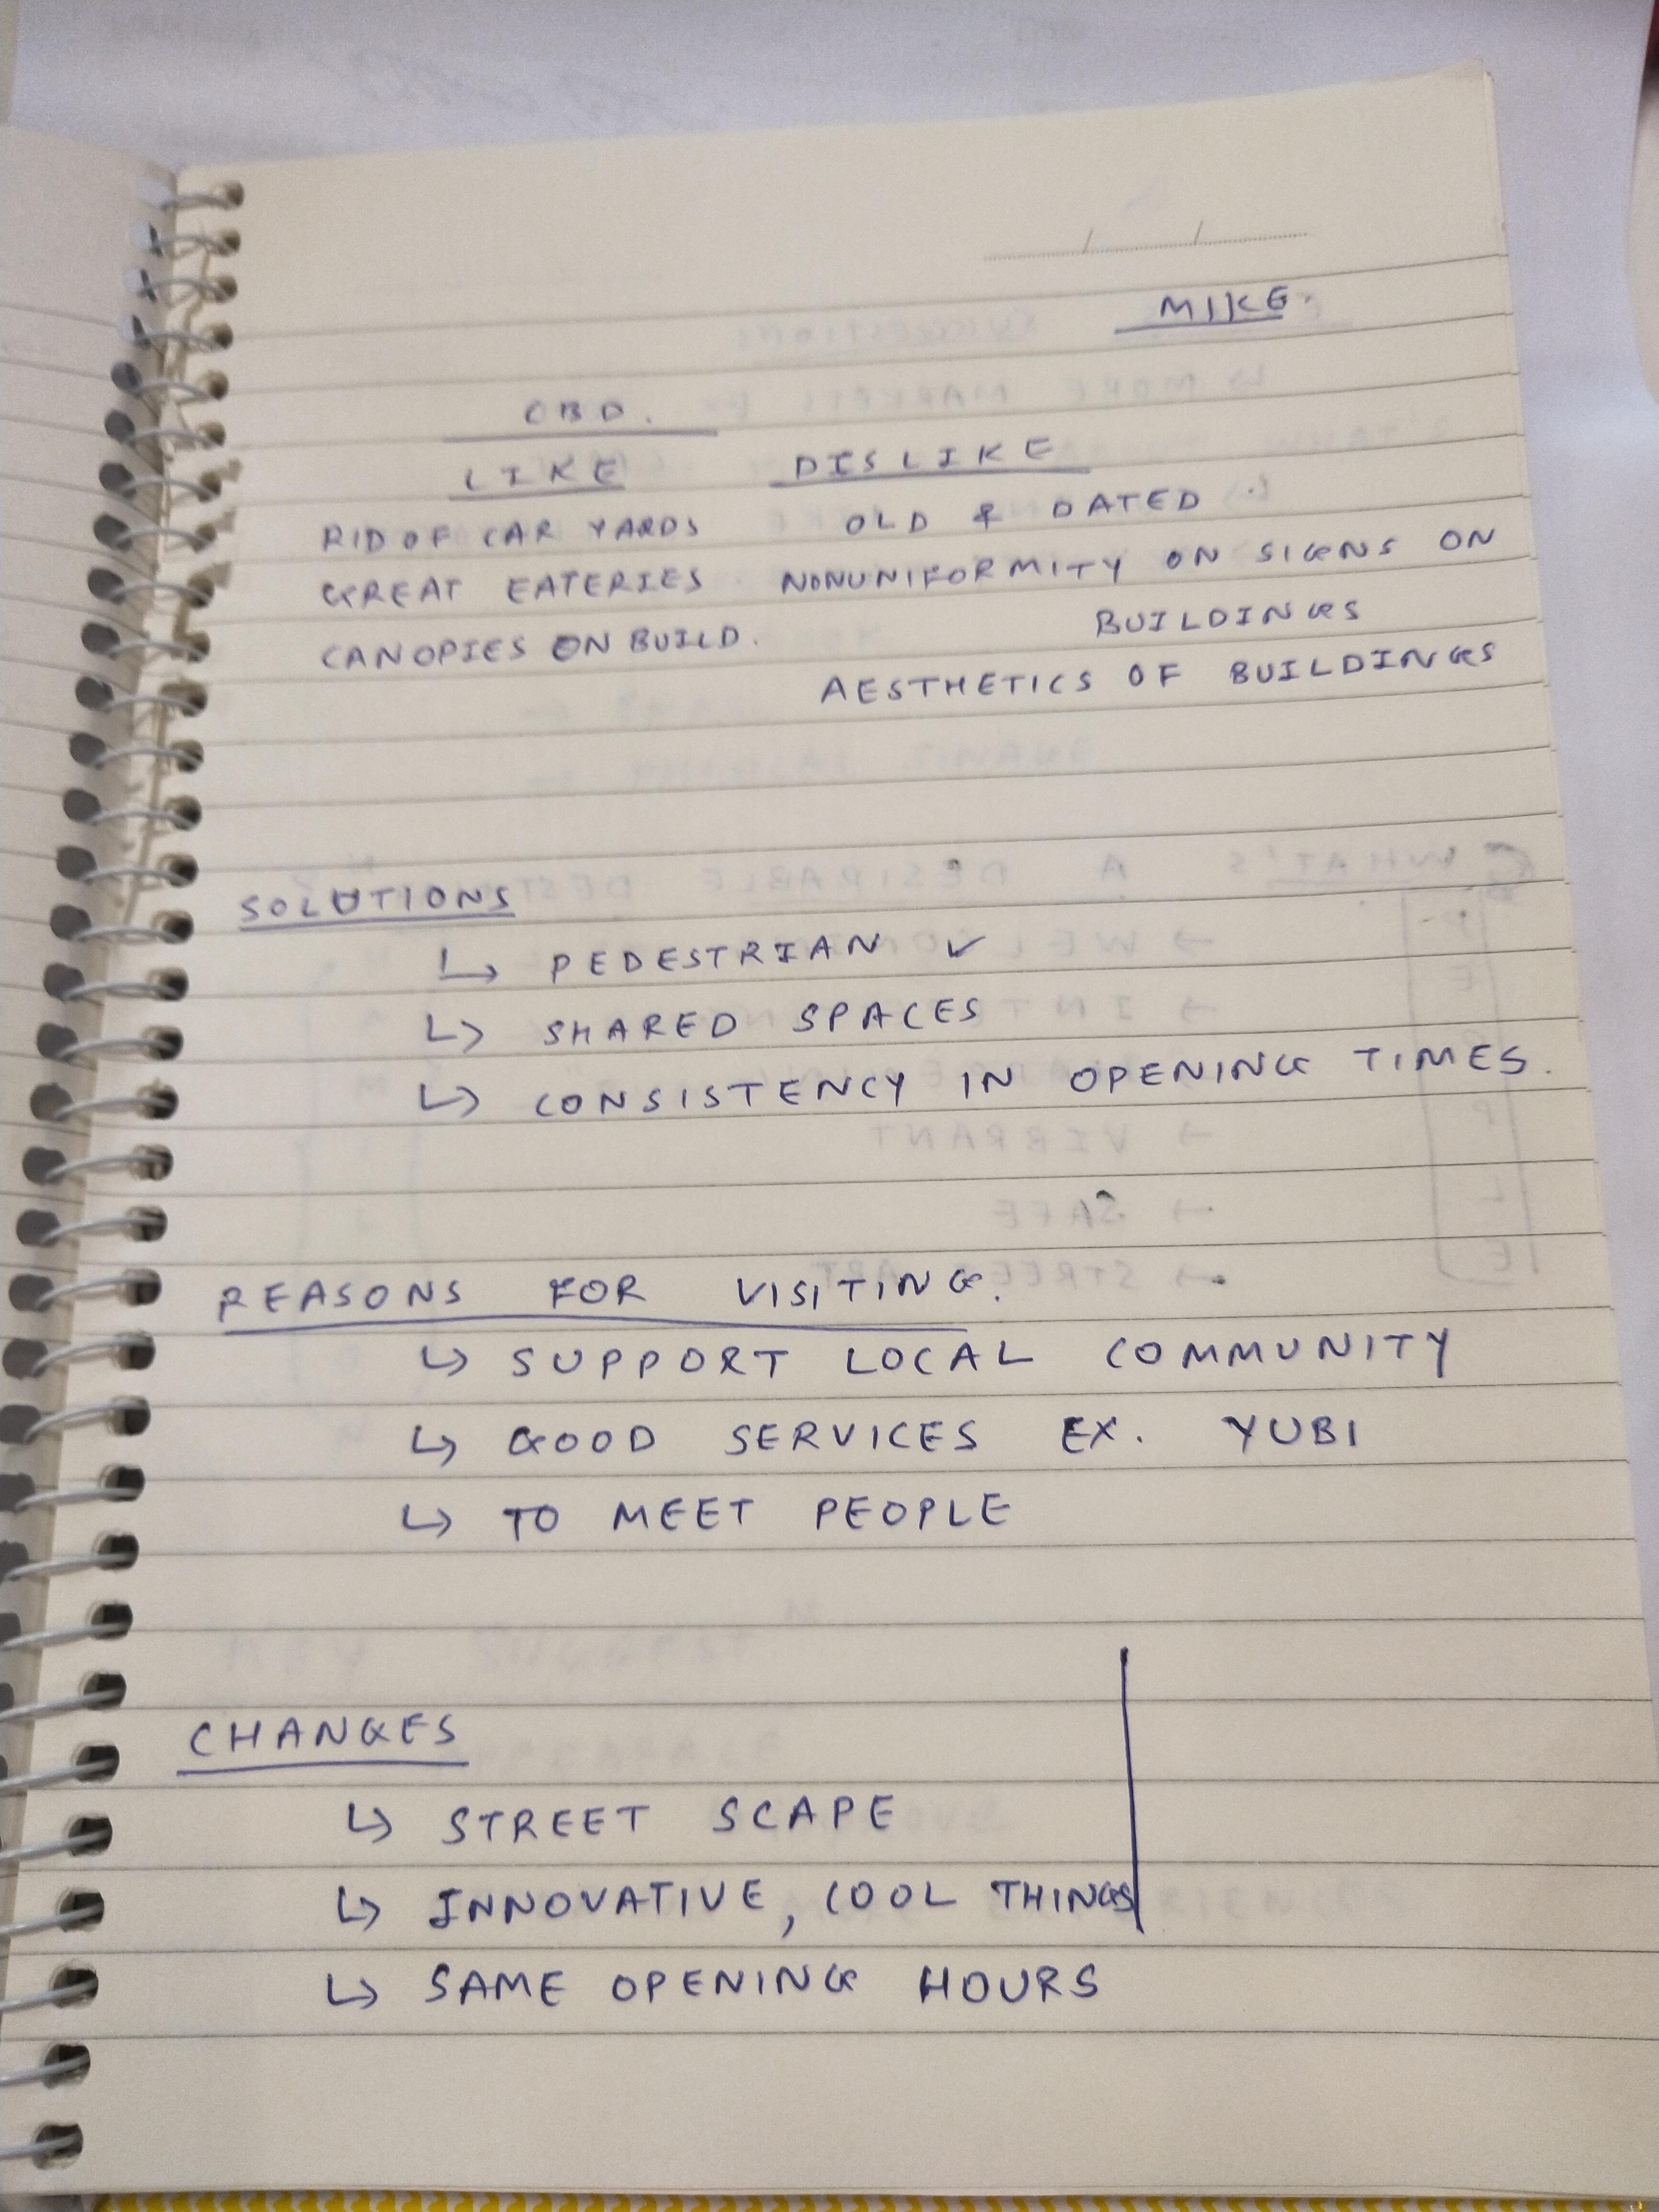 MIKE.
CBD.
LIKE DISLIKE
RID OF CAR YARDS OLD & DATED
GREAT EATERIES NONUNIFORMITY ON SIGNS ON
CANOPIES ON BUILD. BUILDINGS
AESTHETICS OF BUILDINGS
SOLUTIONS
↳ PEDESTRIAN ✓
↳ SHARED SPACES
↳ CONSISTENCY IN OPENING TIMES.
REASONS FOR VISITING.
↳ SUPPORT LOCAL COMMUNITY
↳ GOOD SERVICES EX. YUBI
↳ TO MEET PEOPLE
CHANGES
↳ STREET SCAPE
↳ INNOVATIVE, COOL THINGS
↳ SAME OPENING HOURS